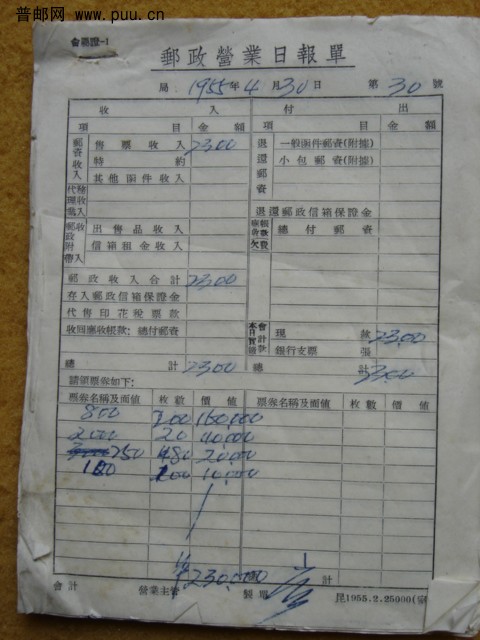 普邮网
www.puu.cn
會局證-1
郵政營業日報單
局 1955年4月30日 第30號
收入 付出
項目 金額 項目 金額
郵資收入 售票收入 2300 退還郵資 一般函件郵資(附據)
特約 小包郵資(附據)
其他函件收入
退還郵政信箱保證金
出售品收入 總付郵資
信箱租金收入
郵政收入合計 2300
存入郵政信箱保證金
代售印花稅票款
收回應收帳款:總付郵資 現款 2300
銀行支票 張
總計 2300 總計 2300
請領票券如下:
票券名稱及面値 枚數 價値 票券名稱及面値 枚數 價値
800 200 160,000
2000 20 40,000
250 480 20,000
100 100 10,000
230,000 計
會計 營業主管 製單 昆1955.2.25000